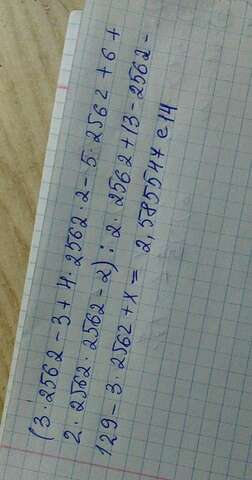 (3·2562-3+4·2562·2-5·2562+6+
2·2562·2562-2):2·2562+13-2562-
129-3·2562+x= 2,585547 e14